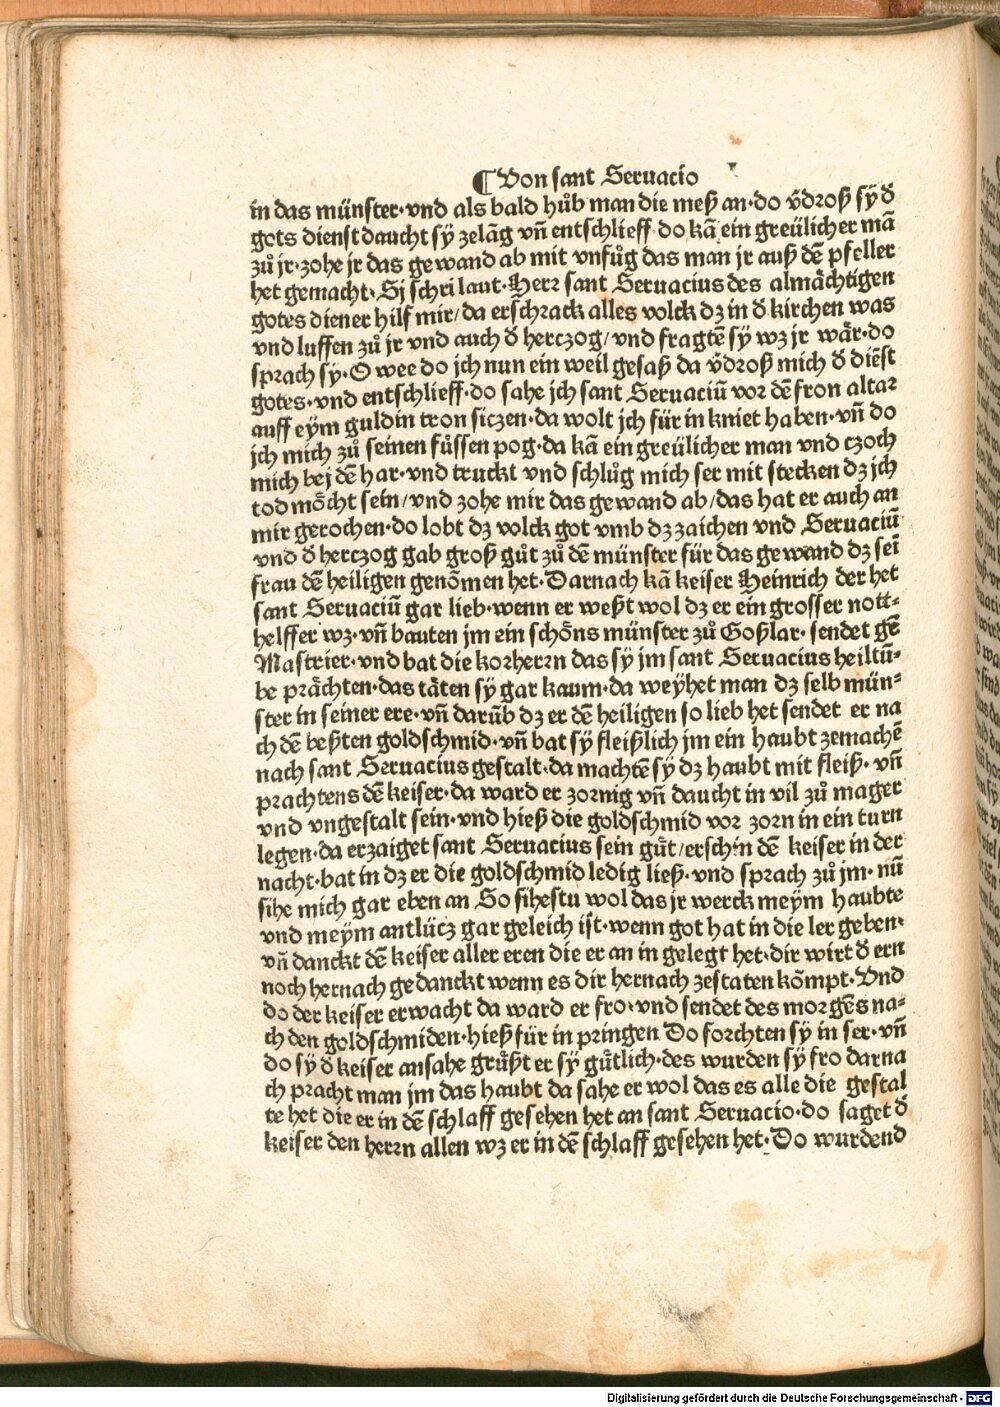 ¶ Von sant Seruacio
in das münster·vnd als bald hůb man die meß an·do v̄droß sÿ d̄
gots dienst daucht sÿ zelāg vn̄ entschlieff·do kā ein greülicher mā
zů jr·zohe jr das gewand ab mit vnfůg das man jr auß dē pfeller
het gemacht·Sj schri laut·Herr sant Seruacius des almåchtigen
gotes diener hilf mir/da erschrack alles volck dz in d̄ kirchen was
vnd luffen zů jr vnd auch d̄ herczog/vnd fragtē sÿ wz jr wår·do
sprach sy·O wee do jch nun ein weil gesaß da v̄droß mich d̄ diēst
gotes·vnd entschlieff·do sahe jch sant Seruaciū vor dē fron altar
auff eÿm guldin tron siczen·da wolt jch für in kniet haben·vn̄ do
jch mich zů seinen fůssen pog·da kā ein greülicher man vnd czoch
mich bej dē har·vnd truckt vnd schlůg mich ser mit stecken dz jch
tod mo̊cht sein/vnd zohe mir das gewand ab/das hat er auch an
mir gerochen·do lobt dz volck got vmb dz zaichen vnd Seruaciū
vnd d̄ herczog gab groß gůt zů dē münster für das gewand dz seī
frau dē heiligen genōmen het·Darnach kā keiser Heinrich der het
sant Seruaciū gar lieb·wenn er weßt wol dz er ein grosser nott⸗
helffer wz·vn̄ bauten jm ein scho̊ns münster zů Goßlar·sendet gē
Mastrier·vnd bat die korherrn das sÿ jm sant Seruacius heiltū⸗
be pråchten·das tåten sÿ gar kaum·da weÿhet man dz selb mün⸗
ster in seiner ere·vn̄ darūb dz er dē heiligen so lieb het sendet er na
ch dē beßten goldschmid·vn̄ bat sÿ fleißlich jm ein haubt zemachē
nach sant Seruacius gestalt·da machtē sÿ dz haubt mit fleiß·vn̄
prachtens dē keiser·da ward er zornig vn̄ daucht in vil zů mager
vnd vngestalt sein·vnd hieß die goldschmid vor zorn in ein turn
legen·da erzaiget sant Seruacius sein gůt/erschin dē keiser in der
nacht·bat in dz er die goldschmid ledig ließ·vnd sprach zů jm·nū
sihe mich gar eben an So sihestu wol das jr werck meÿm haubte
vnd meÿm antlücz gar geleich ist·wenn got hat in die ler geben·
vn̄ danckt dē keiser aller eren die er an in gelegt het·dir wirt d̄ ern
noch hernach gedanckt wenn es dir hernach zestaten ko̊mpt·Vnd
do der keiser erwacht da ward er fro·vnd sendet des morgēs na⸗
ch den goldschmiden·hieß für in pringen Do forchten sÿ in ser·vn̄
do sÿ d̄ keiser ansahe grůßt er sÿ gůtlich·des wurden sÿ fro darna
ch pracht man jm das haubt da sahe er wol das es alle die gestal
te het die er in dē schlaff gesehen het an sant Seruacio·do saget d̄
keiser den herrn allen wz er in dē schlaff gesehen het·Do wurdend
Digitalisierung gefördert durch die Deutsche Forschungsgemeinschaft - DFG